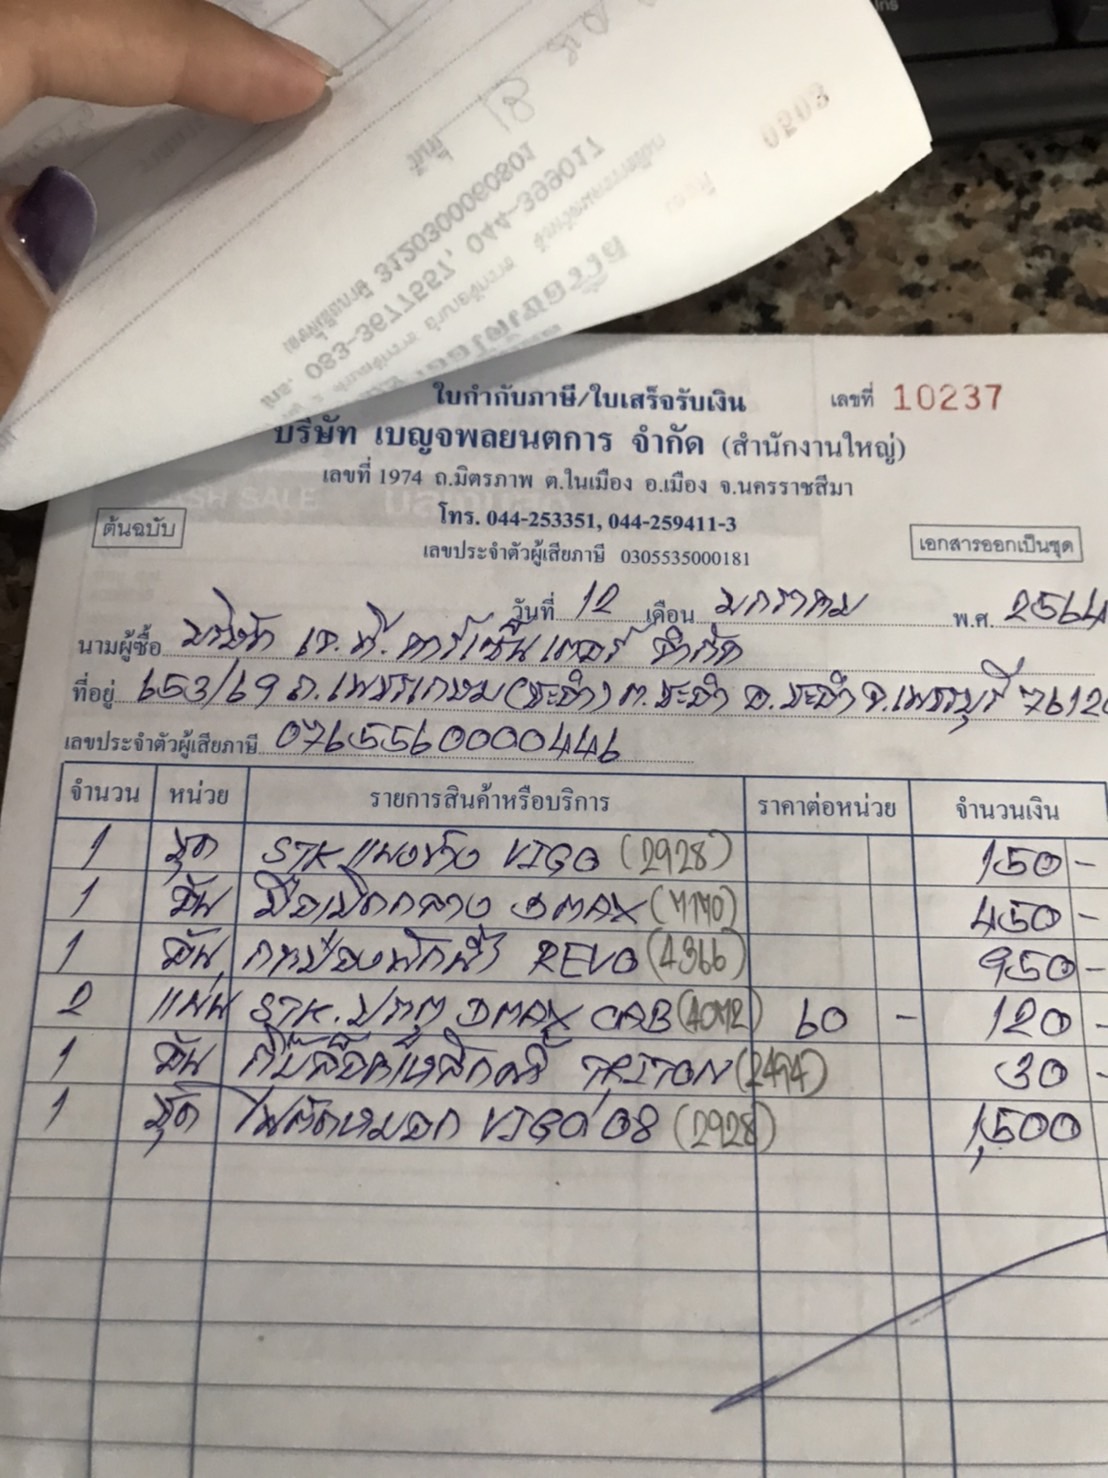 0203
3120300060801
083-3677557, 044-399017
ใบกำกับภาษี/ใบเสร็จรับเงิน เลขที่ 10237
บริษัท เบญจพลยนตการ จำกัด (สำนักงานใหญ่)
เลขที่ 1974 ถ.มิตรภาพ ต.ในเมือง อ.เมือง จ.นครราชสีมา
CASH SALE
โทร. 044-253351, 044-259411-3
ต้นฉบับ
เอกสารออกเป็นชุด
เลขประจำตัวผู้เสียภาษี 0305535000181
วันที่ 12 เดือน มกราคม พ.ศ. 2564
นามผู้ซื้อ บริษัท เจ.ที.คาร์เซ็นเตอร์ จำกัด
ที่อยู่ 653/69 ถ.เพชรเกษม(ชะอำ) ต.ชะอำ อ.ชะอำ จ.เพชรบุรี 76120
เลขประจำตัวผู้เสียภาษี 0765560000446
จำนวน หน่วย รายการสินค้าหรือบริการ ราคาต่อหน่วย จำนวนเงิน
1 ชุด STK แผงข้าง VIGO (2928) 150 -
1 อัน มือเปิดกลาง DMAX (7170) 450 -
1 อัน กระป๋องพักน้ำ REVO (4366) 950 -
2 แผ่น STK. ประตู DMAX CAB (4072) 60 - 120 -
1 อัน กิ๊บล็อค TRITON (2474) 30 -
1 ชุด ไฟตัดหมอก VIGO'08 (2928) 1,500